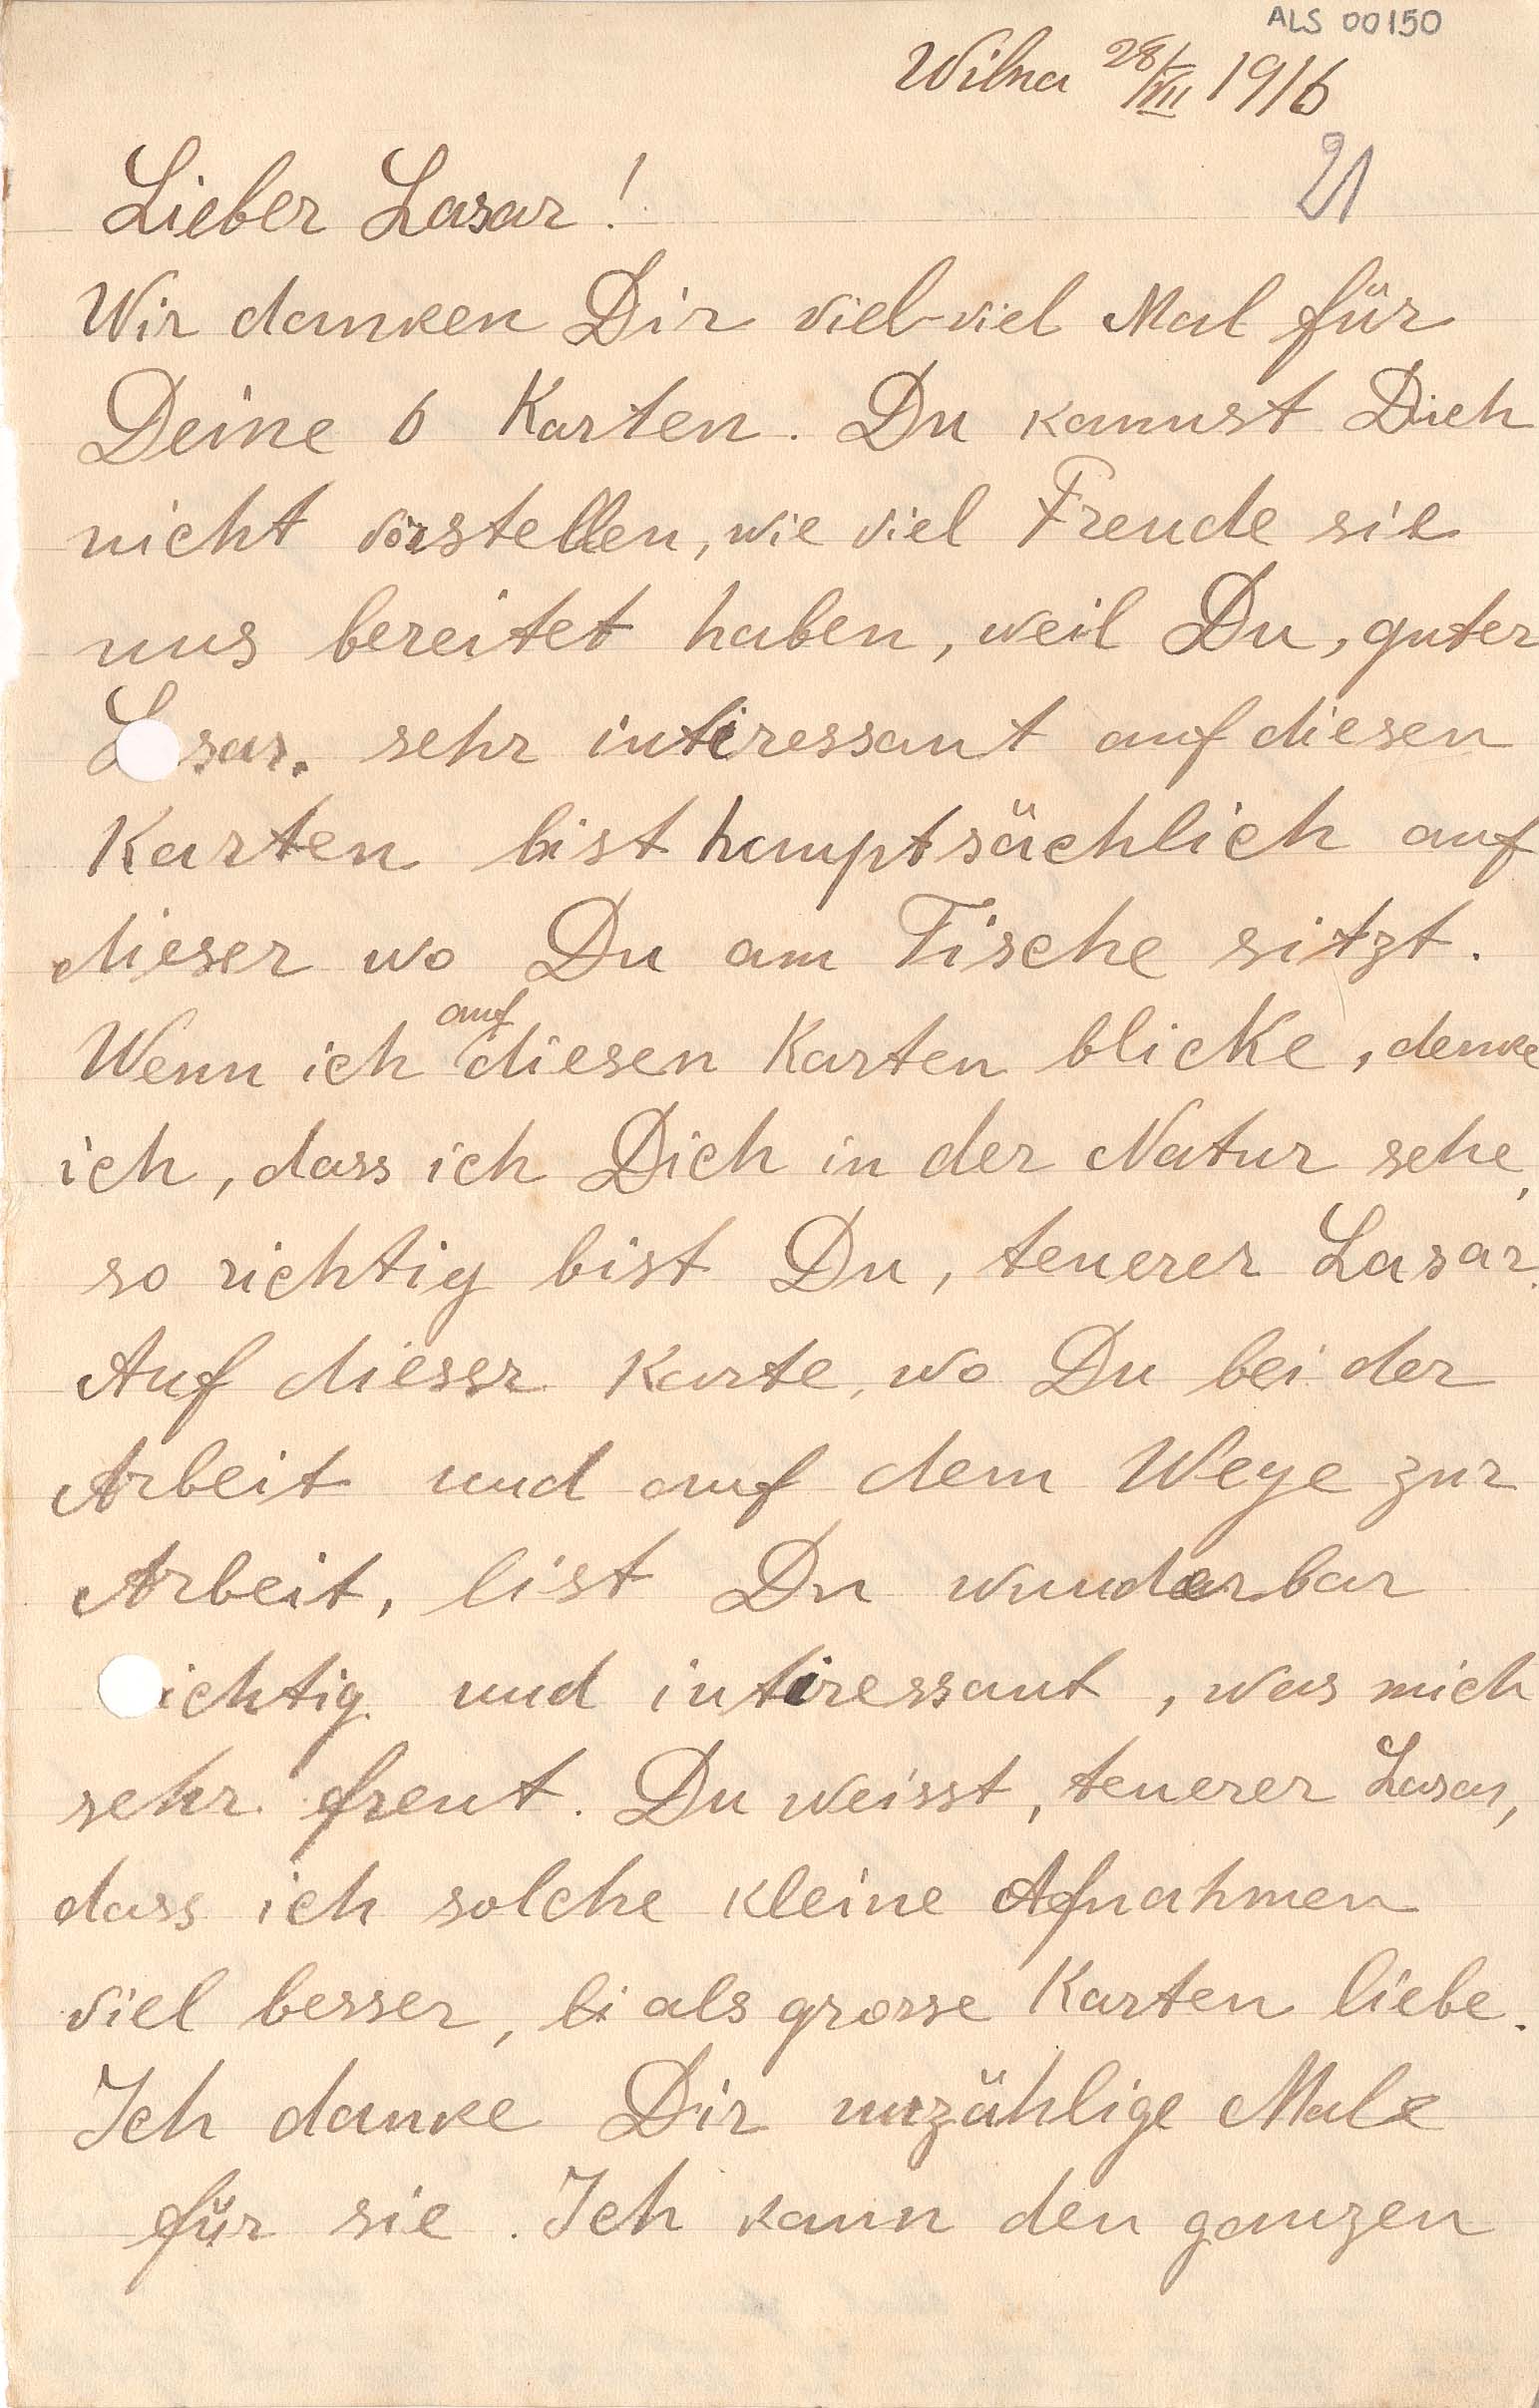 ALS 00150
Wilna 28/VII 1916
21
Lieber Lasar!
Wir danken Dir viel-viel Mal für
Deine 6 Karten. Du kannst Dich
nicht vorstellen, wie viel Freude sie
uns bereitet haben, weil Du, guter
L sar. sehr intiressant auf diesen
Karten bist hauptsächlich auf
dieser wo Du am Tische sitzt.
Wenn ich auf diesen Karten blicke, denke
ich, dass ich Dich in der Natur sehe,
so richtig bist Du, teuerer Lasar.
Auf dieser Karte, wo Du bei der
Arbeit und auf dem Wege zur
Arbeit, bist Du wunderbar
ichtig und intiressant, was mich
sehr freut. Du weisst, teuerer Lasar,
dass ich solche kleine Afnahmen
viel besser, als grosse Karten liebe.
Ich danke Dir unzählige Male
für sie. Ich kann den ganzen